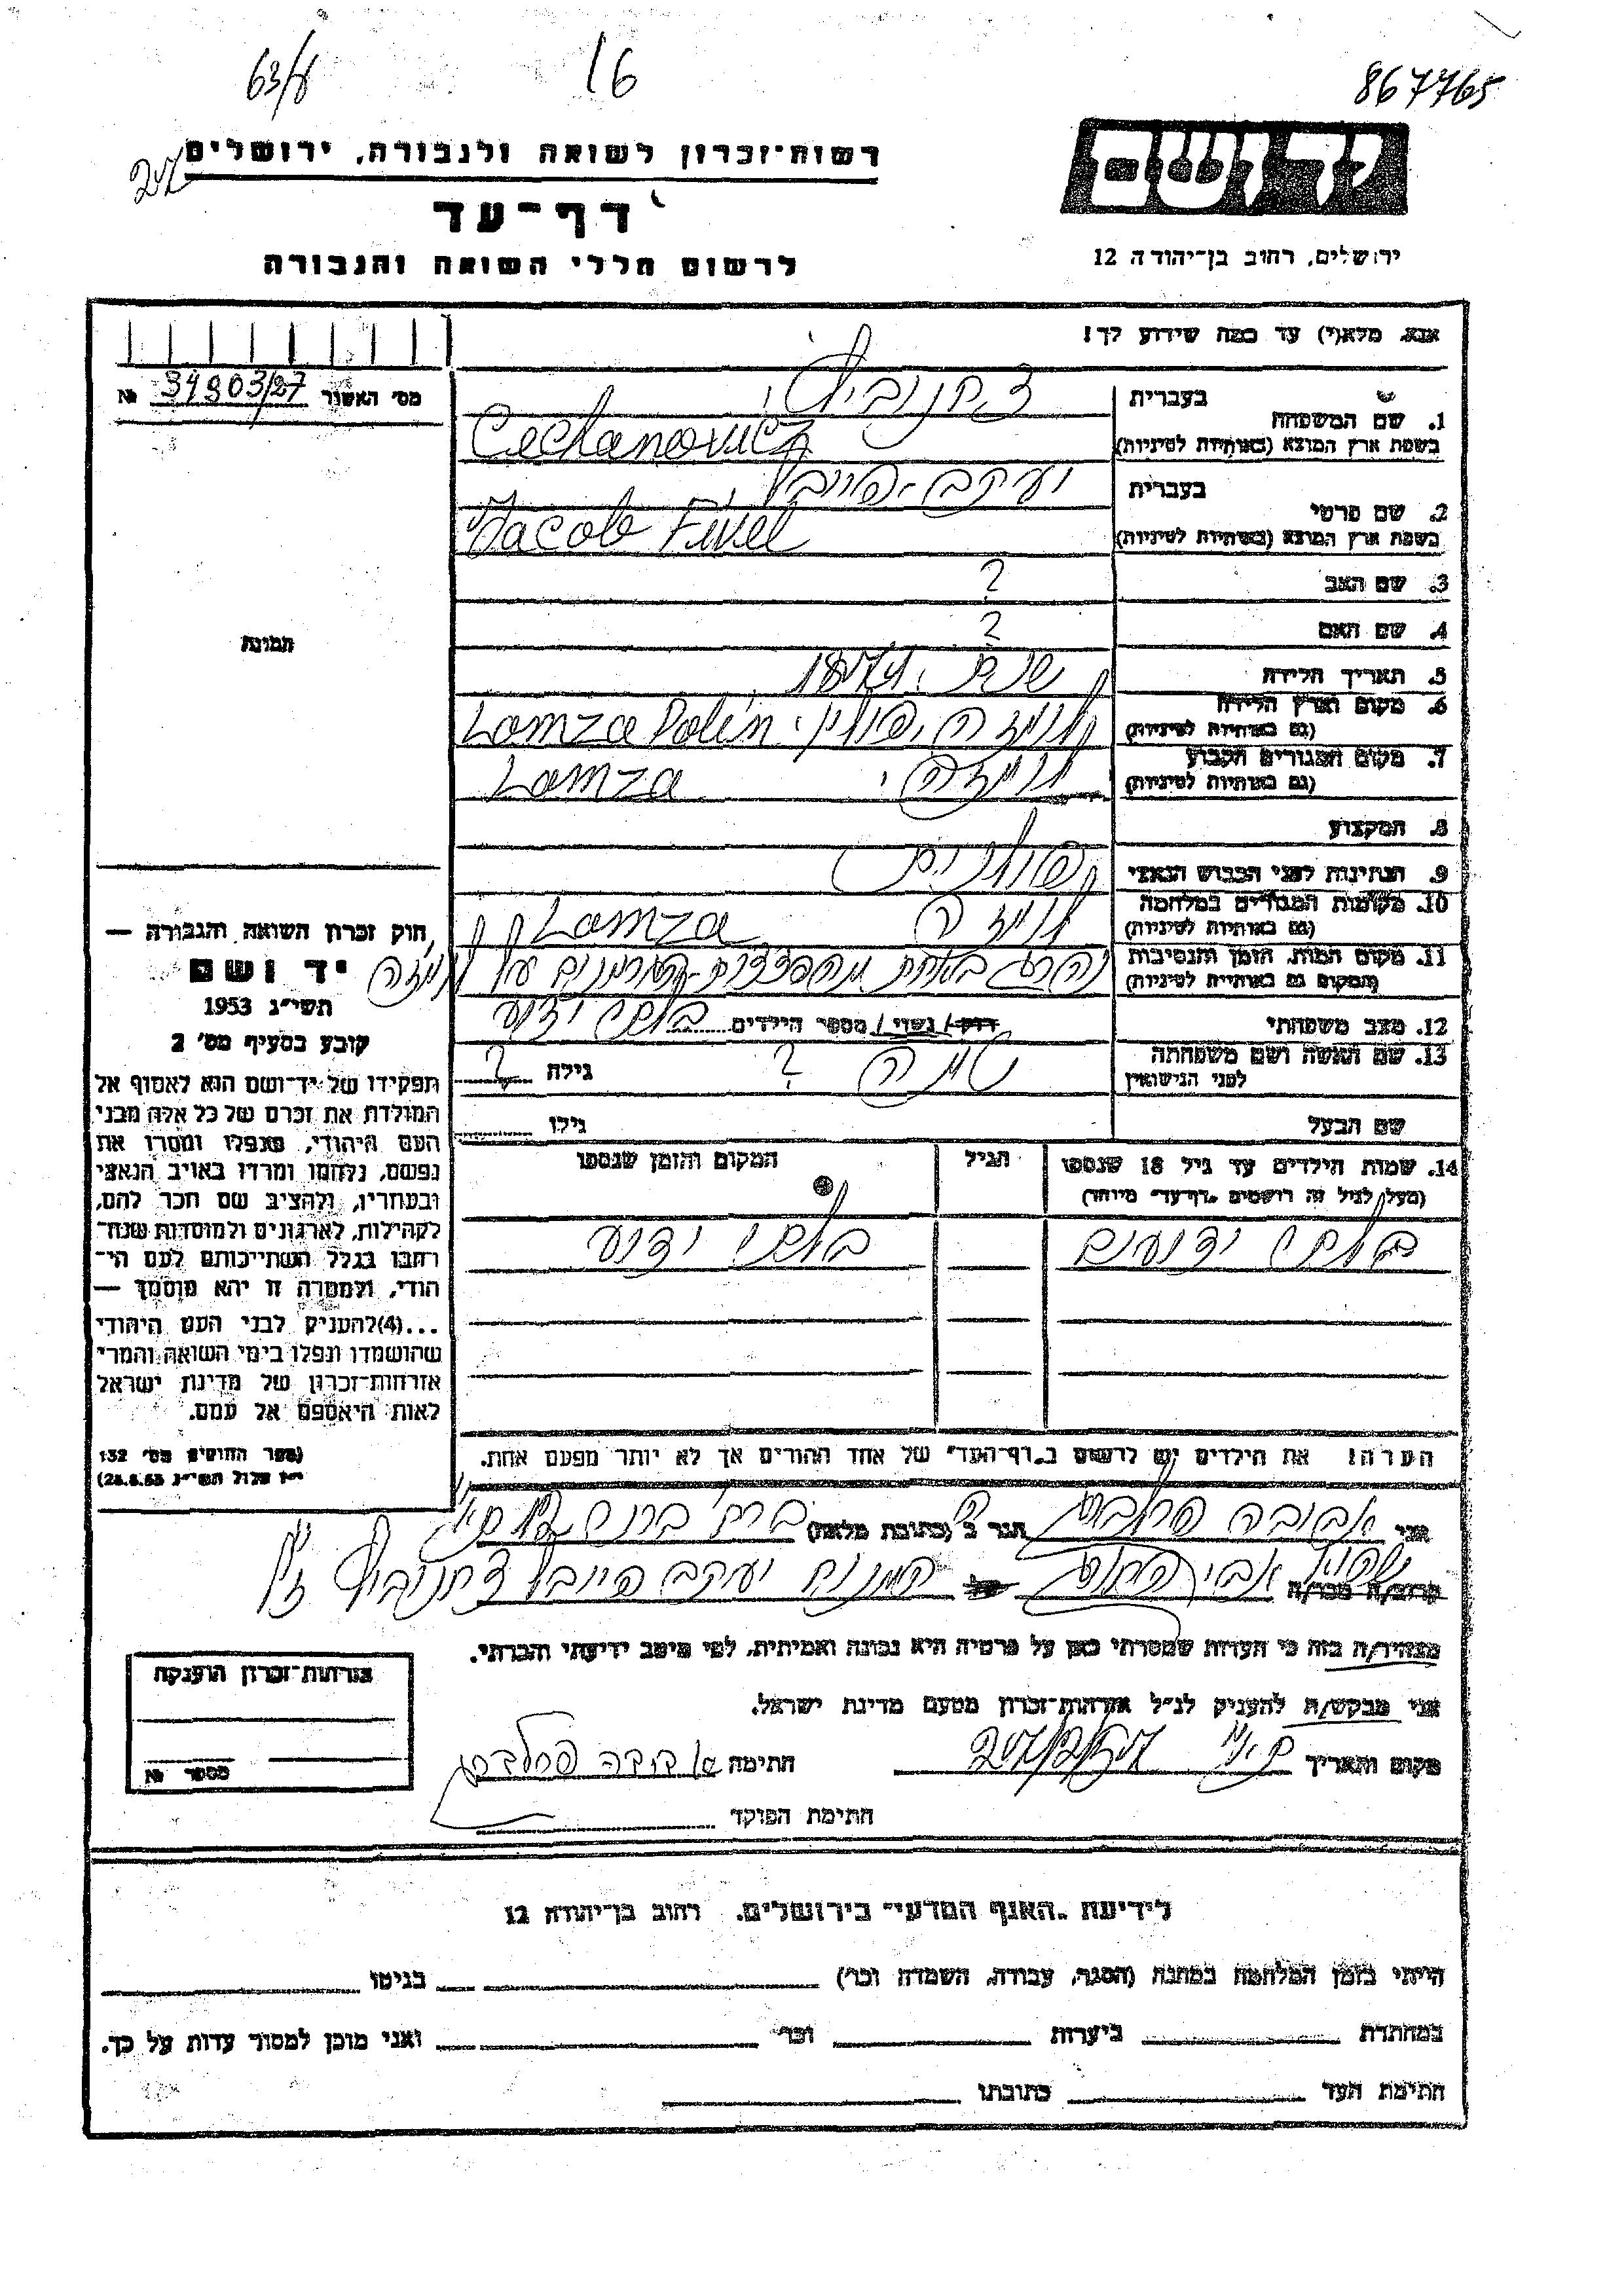 63/8
16
867765
רשות-זכרון לשואה ולגבורה, ירושלים
דף-עד
לרשום חללי השואה והגבורה
ידושם
ירושלים, רחוב בן-יהודה 12
אנא, מלא(י) עד כמה שידוע לך!
מס' האשור 34903/27 №
תמונה
1. שם המשפחה
בעברית צחנוביץ.
בשפת ארץ המוצא (באותיות לטיניות) Cechanovicz
2. שם פרטי
בעברית יעקב-פייבל.
בשפת ארץ המוצא (באותיות לטיניות) Jacob Fivel
3. שם האב ?
4. שם האם ?
5. תאריך הלידה שנת 1874.
6. מקום וארץ הלידה
(גם באותיות לטיניות) לומזה, פולין. Lomza Polin
7. מקום המגורים הקבוע
(גם באותיות לטיניות) לומזה. Lomza
8. המקצוע
9. הנתינות לפני הכבוש הנאצי פולנית
10. מקומות המגורים במלחמה
(גם באותיות לטיניות) לומזה Lomza
11. מקום המות, הזמן והנסיבות
(המקום גם באותיות לטיניות) נהרג באחת
12. מצב משפחתי רווק / נשוי / מספר הילדים בלתי ידוע
13. שם האשה ושם משפחתה
לפני הנישואין ? גילה ?
שם הבעל גילו
14. שמות הילדים עד גיל 18 שנספו
(מעל לגיל זה רושמים "דף-עד" מיוחד)
הגיל
המקום והזמן שנספו
בלתי ידועים
בלתי ידוע
הערה! את הילדים יש לרשום ב"דף-העד" של אחד ההורים אך לא יותר מפעם אחת.
חוק זכרון השואה והגבורה —
יד ושם
תשי"ג 1953
קובע בסעיף מס' 2
תפקידו של יד-ושם הוא לאסוף אל
המולדת את זכרם של כל אלה מבני
העם היהודי, שנפלו ומסרו את
נפשם, נלחמו ומרדו באויב הנאצי
ובעוזריו, ולהציב שם וזכר להם,
לקהילות, לארגונים ולמוסדות שנח-
רבו בגלל השתייכותם לעם הי-
הודי, ולמטרה זו יהא מוסמך —
...(4) להעניק לבני העם היהודי
שהושמדו ונפלו בימי השואה והמרי
אזרחות-זכרון של מדינת ישראל
לאות היאספם אל עמם.
(ספר החוקים מס' 132
י"ז אלול תשי"ג 28.8.53)
אני אביבה גר ב (כתובת מלאה)
קרוב/ה מכר/ה של המנוח יעקב פייבל צחנוביץ ז"ל
מצהיר/ה בזה כי העדות שמסרתי כאן על פרטיה היא נכונה ואמיתית, לפי מיטב ידיעתי והכרתי.
אני מבקש/ת להעניק לנ"ל אזרחות-זכרון מטעם מדינת ישראל.
מקום ותאריך
חתימה אביבה
חתימת הפוקד
אזרחות-זכרון הוענקה
מספר №
לידיעת "האגף המדעי" בירושלים, רחוב בן-יהודה 12
הייתי בזמן המלחמה במחנה (הסגר, עבודה, השמדה וכו') בגיטו
במחתרת ביערות וכו' ואני מוכן למסור עדות על כך.
חתימת העד כתובתו